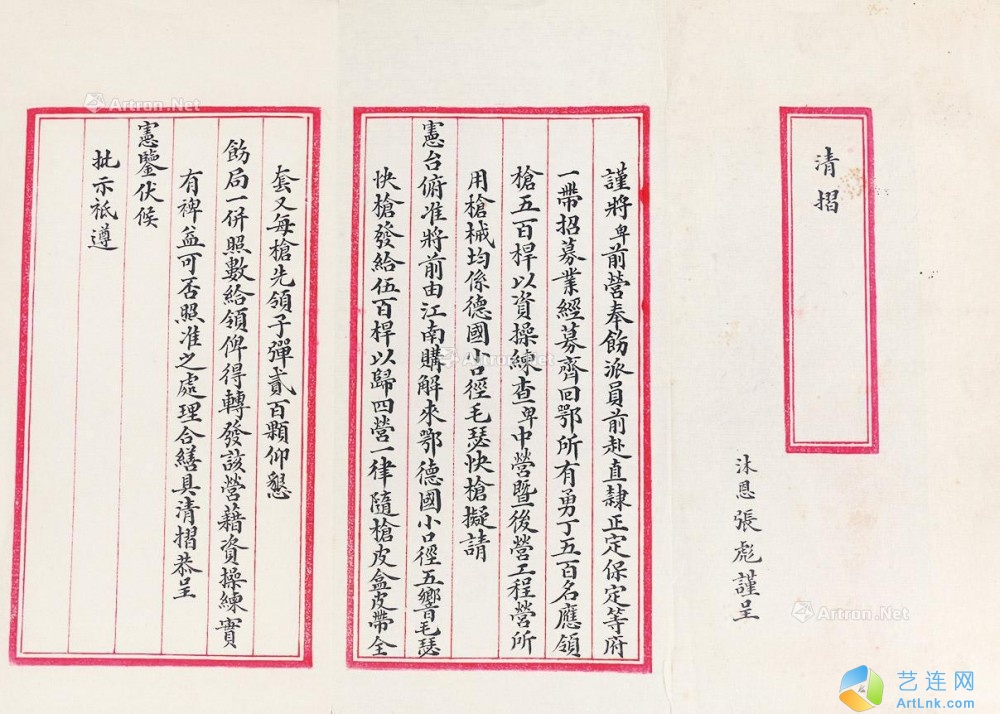 清摺
沐恩張彪謹呈
謹將卑前營奉飭派員前赴直隸正定保定等府
一帶招募業經募齊回鄂所有勇丁五百名應領
槍五百桿以資操練查卑中營暨後營工程營所
用槍械均係德國小口徑毛瑟快槍擬請
憲台俯准將前由江南購解來鄂德國小口徑五響毛瑟
快槍發給伍百桿以歸四營一律隨槍皮盒皮帶全
套又每槍先領子彈貳百顆仰懇
飭局一併照數給領俾得轉發該營藉資操練實
有裨益可否照准之處理合繕具清摺恭呈
憲鑒伏候
批示祗遵
Artron.Net
Artron.Net
Artron.Net
艺连网
ArtLnk.com